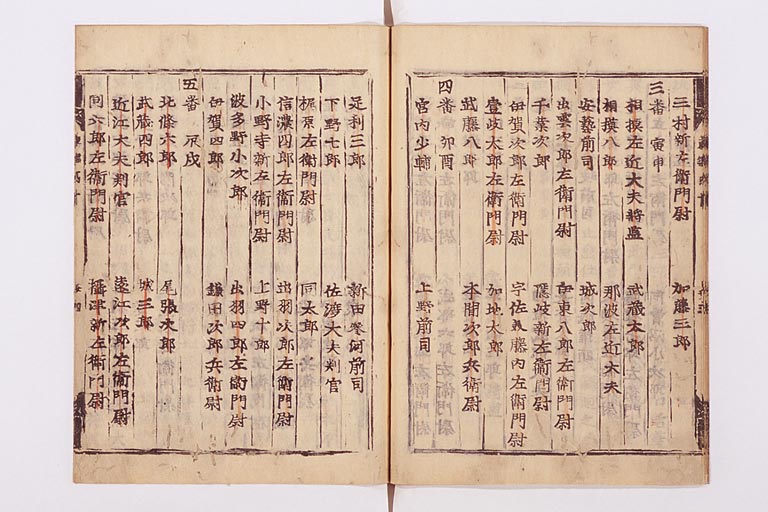 三村新左衛門尉 加藤三郎
三番 寅申
相摸左近大夫将監 武藏太郎
相摸八郎 那波左近大夫
安藝前司 城次郎
出雲次郎左衛門尉 伊東八郎左衛門尉
千葉次郎 隱岐新左衛門尉
伊賀次郎左衛門尉 宇佐美藤内左衛門尉
壹岐太郎左衛門尉 加地太郎
武藤八郎 本間次郎兵衛尉
四番 卯酉
宮内少輔 上野前司
足利三郎 新田参河前司
下野七郎 佐渡大夫判官
梶原左衛門尉 同太郎
信濃四郎左衛門尉 出羽次郎左衛門尉
小野寺新左衛門尉 上野十郎
波多野小次郎 出羽四郎左衛門尉
伊賀四郎 鎌田次郎兵衛尉
五番 辰戌
北條六郎 尾張次郎
武藏四郎 城三郎
近江大夫判官 遠江次郎左衛門尉
同六郎左衛門尉 攝津新左衛門尉